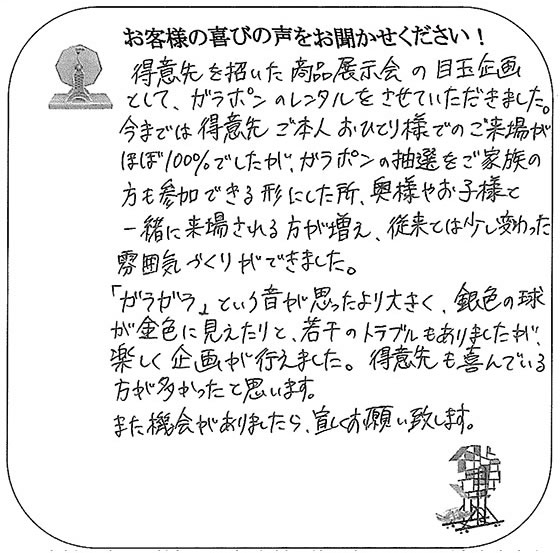 お客様の喜びの声をお聞かせください！
得意先を招いた商品展示会の目玉企画
として、ガラポンのレンタルをさせていただきました。
今までは得意先ご本人おひとり様でのご来場が
ほぼ100%でしたが、ガラポンの抽選をご家族の
方も参加できる形にした所、奥様やお子様と
一緒に来場される方が増え、従来とは少し変わった
雰囲気づくりができました。
「ガラガラ」という音が思ったより大きく、銀色の球
が金色に見えたりと、若干のトラブルもありましたが、
楽しく企画が行えました。得意先も喜んでいる
方が多かったと思います。
また機会がありましたら、宜しくお願い致します。